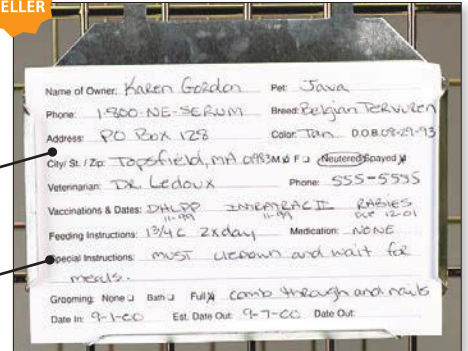 ELLER
Name of Owner: Karen Gordon Pet: Java
Phone: 1-800-NE-SERUM Breed: Belgian Tervuren
Address: PO Box 128 Color: Tan D.O.B. 08-29-93
City/ St. / Zip: Topsfield, MA 01983 M F Neutered Spayed
Veterinarian: DR. Ledoux Phone: 555-5555
Vaccinations & Dates: DHLPP INTRATRAC II RABIES
11-99 11-99 DUE 12-01
Feeding Instructions: 1 3/4 C 2x day Medication: NONE
Special Instructions: must lie down and wait for
meals.
Grooming: None Bath Full comb through and nails
Date In: 9-1-00 Est. Date Out: 9-7-00 Date Out: